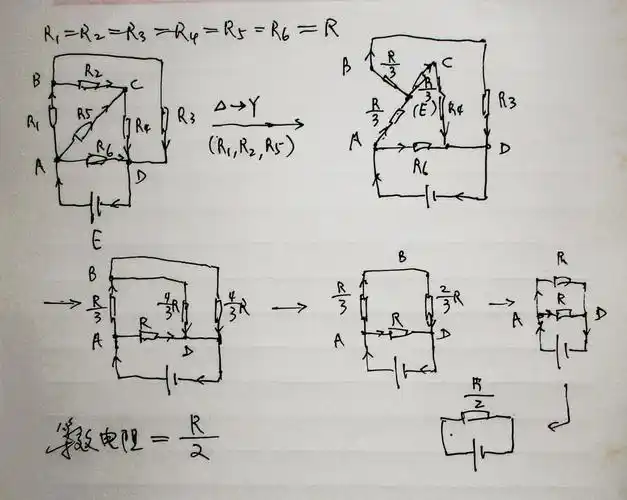 R₁=R₂=R₃=R₄=R₅=R₆=R
B R₂ C
R₁ R5 R₄ R₃
A R₆ D
E
Δ→Y
(R₁,R₂,R₅)
B R/3 C
R/3 R/3 (E) R₄ R₃
A R₆ D
B
R/3 4/3R 4/3R
A R D
B
R/3 2/3R
A R D
R
A R D
R/2
等效电阻=R/2